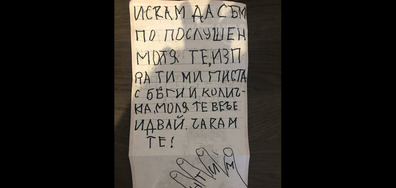 ИСКАМ ДА СЪМ
ПО ПОСЛУШЕН
МОЛЯ ТЕ, ИЗП
РАТИ МИ ПИСТА
С БЕГИ И КОЛИЧ-
КА. МОЛЯ ТЕ ВЕЧЕ
ИДВАЙ. ЧАКАМ
ТЕ!